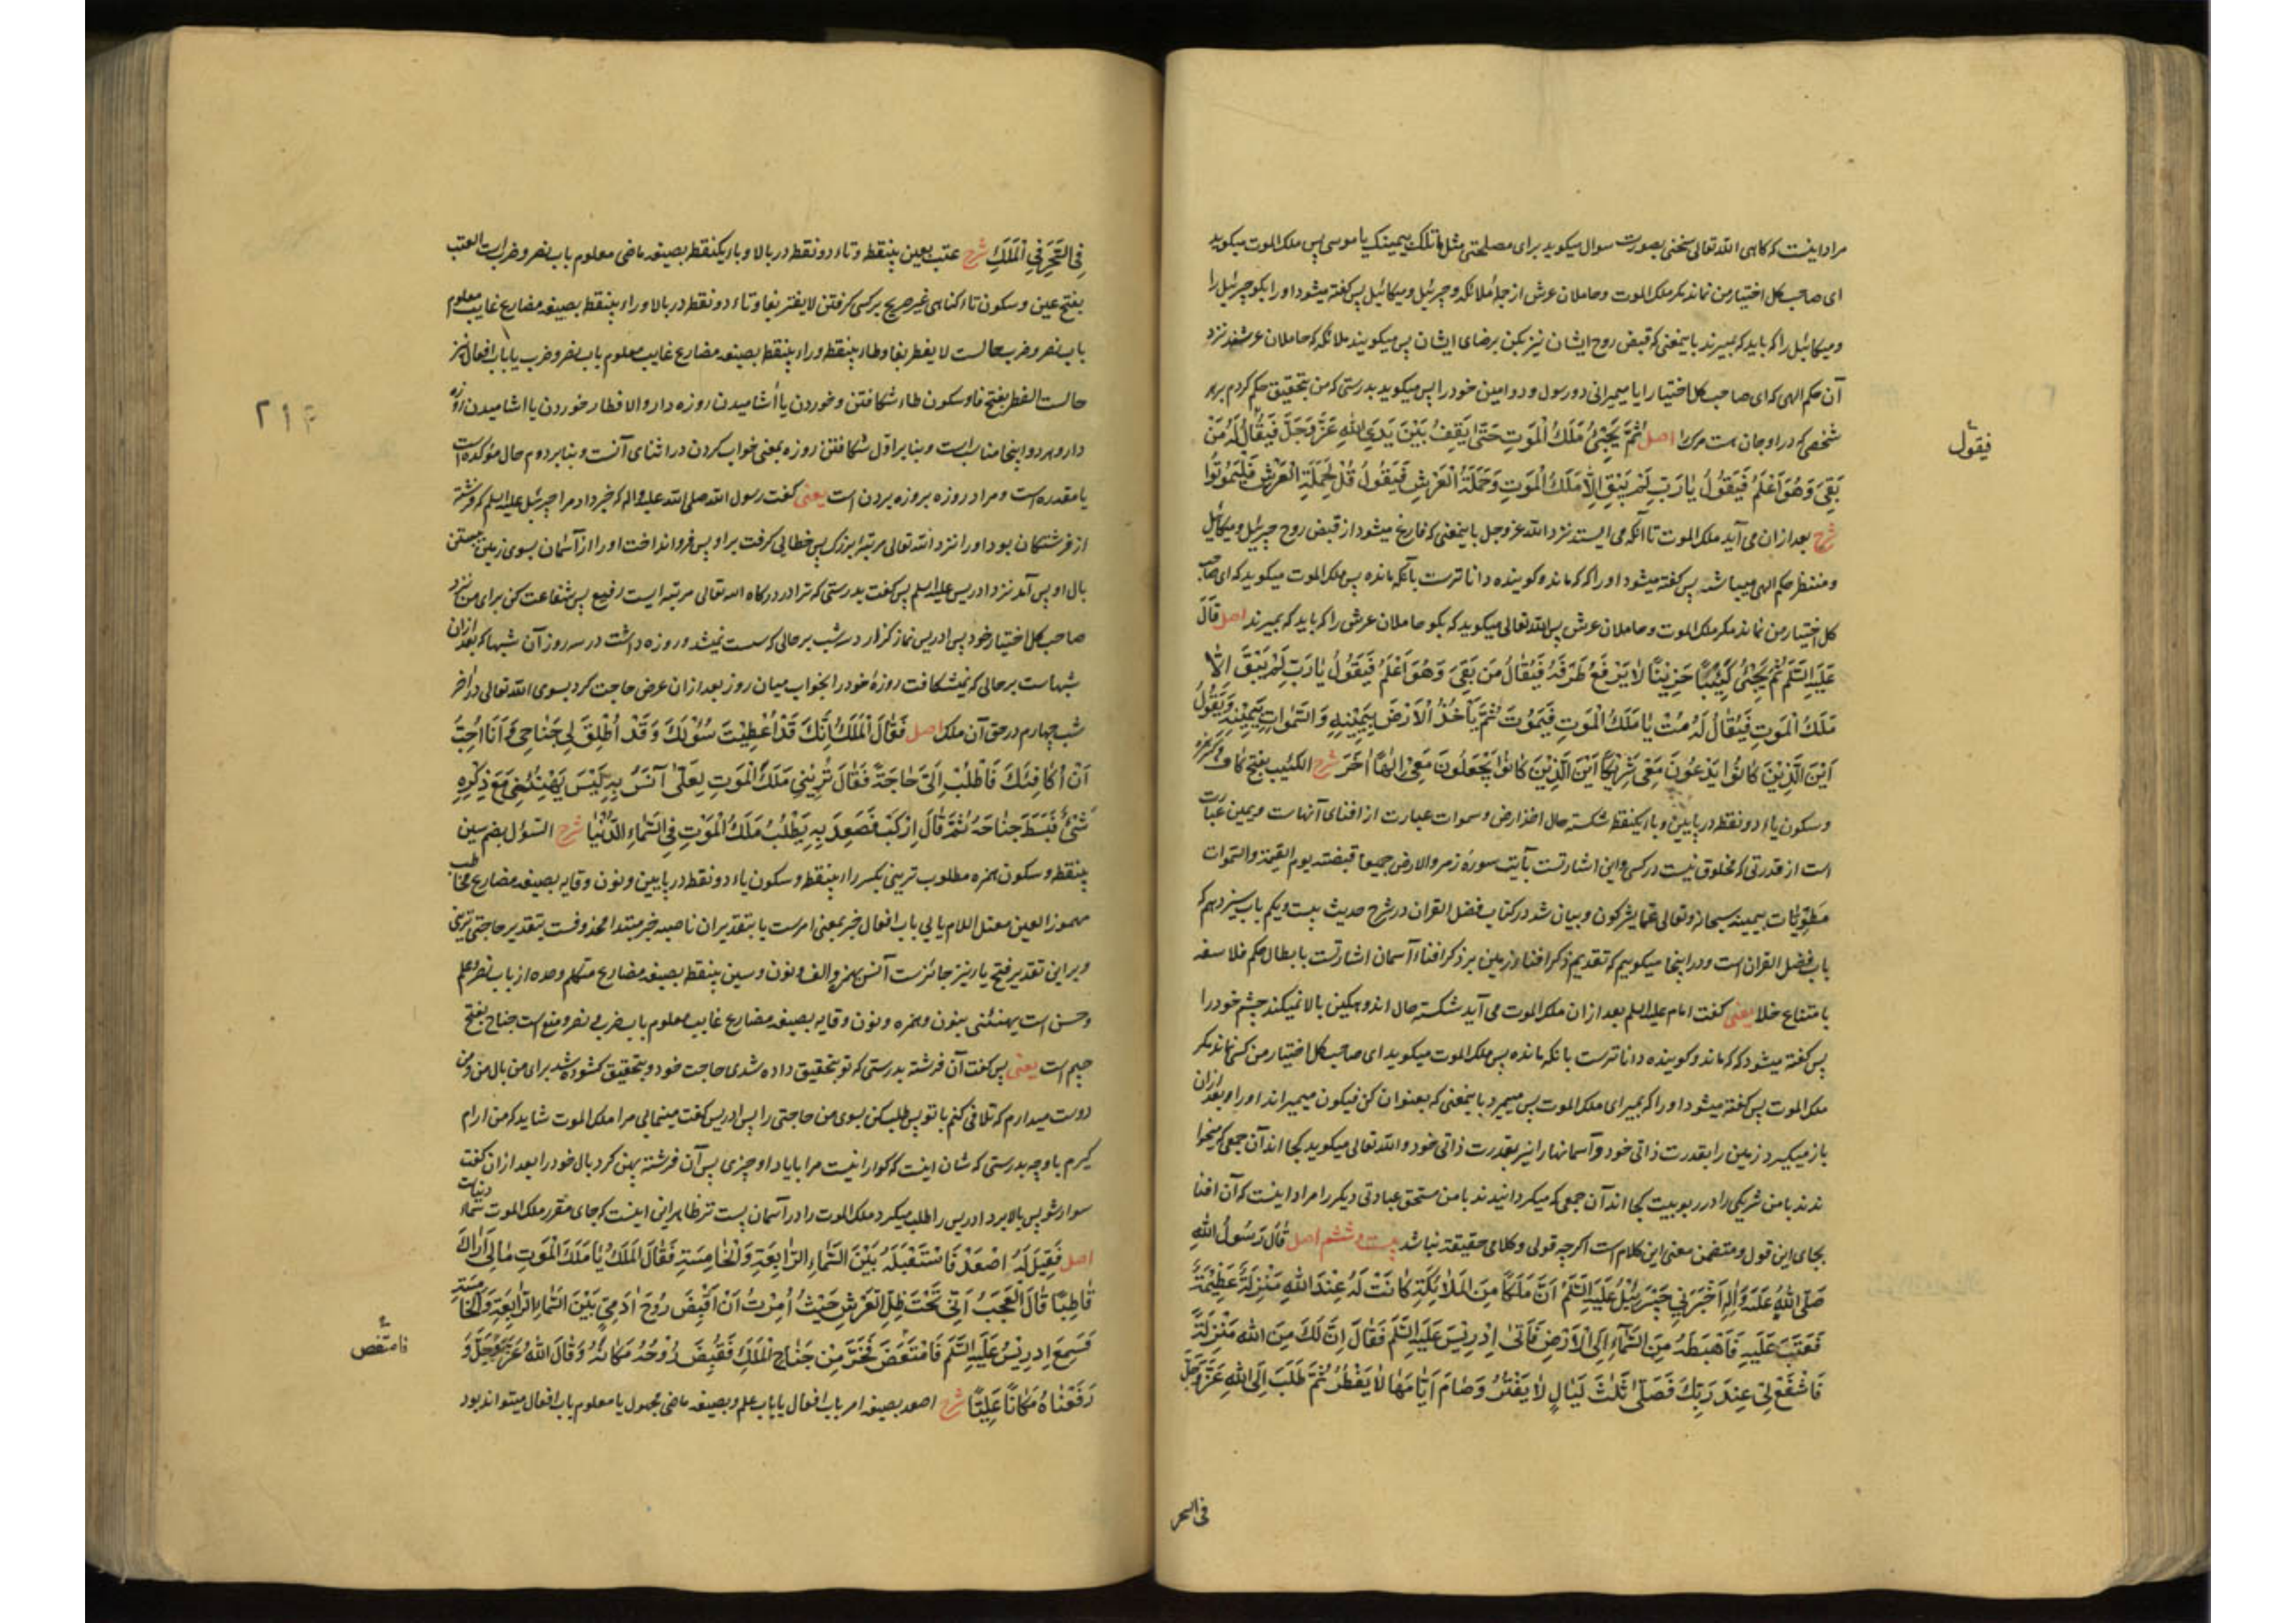 مراد اینست که کاهی الله تعالی سخنی بصورت سوال میکوید برای مصلحتی مثل ما تلک بیمینک یا موسی پس ملک الموت میکوید
ای صاحب کل اختیار من نماند مکر ملک الموت و حاملان عرش از جمله ملائکه و جبرئیل و میکائیل پس کفته میشود او را بکو جبرئیل را
و میکائیل را که باید که بمیرند باینمعنی که قبض روح ایشان نیز بکن برضای ایشان پس میکویند ملائکه که حاملان عرشند نزد
آن حکم الهی که ای صاحب کل اختیار ایا میمیرانی دو رسول و دو امین خود را پس میکوید بدرستی که من بتحقیق حکم کردم بر هر
شخصی که در او جان هست مرک را اصل ثُمَّ یَجِیْئُ مَلَکُ الْمَوتِ حَتّٰی یَقِفُ بَیْنَ یَدَیِ اللهِ عَزَّ وَجَلَّ فَیُقٰالُ لَهُ مَنْ
فیقول
بَقِیَ وَهُوَ اَعْلَمُ فَیَقُولُ یٰا رَبِّ لَمْ یَبْقَ اِلّٰا مَلَکُ الْمَوتِ وَحَمَلَةُ الْعَرْشِ فَیَقُولُ قُلْ لِحَمَلَةِ الْعَرْشِ فَلْیَمُوتُوا
شرح بعد از ان می آید ملک الموت تا آنکه می ایستد نزد الله عز وجل باینمعنی که فارغ میشود از قبض روح جبرئیل و میکائیل
و منتظر حکم الهی میباشد پس کفته میشود او را که که مانده و کوینده داناترست بآنکه مانده پس ملک الموت میکوید که ای صاحب
کل اختیار من نماند مکر ملک الموت و حاملان عرش پس الله تعالی میکوید که بکو حاملان عرش را که باید که بمیرند اصل قٰالَ
عَلَیْهِ السَّلَمُ ثُمَّ یَجِیْئُ کَئِیْبًا حَزِیْنًا لٰا یَرْفَعُ طَرْفَهُ فَیُقٰالُ مَنْ بَقِیَ وَهُوَ اَعْلَمُ فَیَقُولُ یٰا رَبِّ لَمْ یَبْقَ اِلّٰا
مَلَکُ الْمَوتِ فَیُقٰالُ لَهُ مُتْ یٰا مَلَکَ الْمَوتِ فَیَمُوتُ ثُمَّ یَأْخُذُ الْاَرْضَ بِیَمِیْنِهِ وَالسَّمٰوٰاتِ بِیَمِیْنِهِ وَیَقُولُ
اَیْنَ الَّذِیْنَ کٰانُوا یَدْعُونَ مَعِیَ شَرِیْکًا اَیْنَ الَّذِیْنَ کٰانُوا یَجْعَلُونَ مَعِیَ اِلٰهًا اٰخَرَ شرح الکئیب بفتح کاف و کسر همزه
و سکون یاء دو نقطه در پایین و باء یکنقطه شکسته حال اخذ ارض و سموات عبارت از افنای آنهاست و یمین عبارت
است از قدرتی که مخلوق نیست در کسی و این اشارتست بآیت سورهٔ زمر والارض جمیعا قبضته یوم القیمة والسموات
مَطْوِیّٰات بیمینه سبحانه وتعالی عما یشرکون و بیان شد در کتاب فضل القران در شرح حدیث بیست و یکم باب سیزدهم که
باب فضل القران است و در اینجا میکوییم که تقدیم ذکر افناء زمین بر ذکر افناء آسمان اشارتست بابطال حکم فلاسفه
بامتناع خلا یعنی کفت امام علیه السلم بعد از ان ملک الموت می آید شکسته حال اندوهکین بالا نمیکند چشم خود را
پس کفته میشود که که ماند و کوینده داناترست بانکه مانده پس ملک الموت میکوید ای صاحب کل اختیار من کسی نماند مکر
ملک الموت پس کفته میشود او را که بمیر ای ملک الموت پس میمیرد باینمعنی که بعنوان کن فیکون میمیراند او را و بعد از ان
باز میکیرد زمین را بقدرت ذاتی خود و آسمانها را نیز بقدرت ذاتی خود و الله تعالی میکوید کجا اند آن جمعی که میخوا
ندند با من شریکی را در ربوبیت کجا اند آن جمعی که میکردانیدند با من مستحق عبادتی دیکر را مراد اینست که آن افنا
بجای این قول و متضمن معنی این کلام است اکرچه قولی و کلامی حقیقة نباشد بیست و ششم اصل قٰالَ رَسُولُ اللهِ
صَلَّی اللهُ عَلَیْهِ وَاٰلِهِ اَخْبَرَنِی جَبْرَئِیْلُ عَلَیْهِ السَّلَمُ اَنَّ مَلَکًا مِنَ الْمَلٰائِکَةِ کٰانَتْ لَهُ عِنْدَ اللهِ مَنْزِلَةٌ عَظِیْمَةٌ
فَعَتَبَ عَلَیْهِ فَاَهْبَطَهُ مِنَ السَّمٰاءِ اِلَی الْاَرْضِ فَاَتٰی اِدْرِیْسَ عَلَیْهِ السَّلَمُ فَقٰالَ اِنَّ لَکَ مِنَ اللهِ مَنْزِلَةً
فَاشْفَعْ لِی عِنْدَ رَبِّکَ فَصَلّٰی ثَلٰثَ لَیٰالٍ لٰا یَفْتُرُ وَصٰامَ اَیّٰامَهٰا لٰا یَفْطُرُ ثُمَّ طَلَبَ اِلَی اللهِ عَزَّ وَجَلَّ
فی السحر
فِی السَّحَرِ فِی الْمَلَکِ شرح عتب بعین بینقطه و تاء دو نقطه در بالا و باء یکنقطه بصیغه ماضی معلوم باب نصر و ضرب است العتب
بفتح عین و سکون تاء کناهی غیر صریح بر کسی کرفتن لا یفتر بفا و تاء دو نقطه در بالا و راء بینقطه بصیغه مضارع غایب معلوم
باب نصر و ضرب حالست لا یفطر بفا و طاء بینقطه و راء بینقطه بصیغه مضارع غایب معلوم باب نصر و ضرب یا باب افعال نیز
حالست الفطر بفتح فا و سکون طاء شکافتن و خوردن یا آشامیدن روزه دار والافطار خوردن یا اشامیدن روزه
۲۱۴
دار و هر دو اینجا مناسبست و بنا بر اوّل شکافتن روزه بمعنی خواب کردن در اثنای آنست و بنا بر دوم حال مؤکده است
یا مقدره است و مراد روزه بروزه بردن است یعنی کفت رسول الله صلی الله علیه واله که خبر داد مرا جبرئیل علیه السلم که فرشتهٔ
از فرشتکان بود او را نزد الله تعالی مرتبهٔ بزرک پس خطایی کرفت بر او پس فرو انداخت او را از آسمان بسوی زمین
بال او پس آمد نزد ادریس علیه السلم پس کفت بدرستی که ترا در درکاه الله تعالی مرتبه ایست رفیع پس شفاعت کن برای من نزد
صاحب کل اختیار خود پس ادریس نماز کزارد سه شب بر حالی که سست نمیشد و روزه داشت در سه روز آن شبها که بعد از ان
شبهاست بر حالی که نمیشکافت روزهٔ خود را بخواب میان روز بعد از ان عرض حاجت کرد بسوی الله تعالی در اخر
شب چهارم در حق آن ملک اصل فَقٰالَ الْمَلَکُ اِنَّکَ قَدْ اُعْطِیْتَ سُؤْلَکَ وَقَدْ اُطْلِقَ لِی جَنٰاحِی وَ اَنَا اُحِبُّ
اَنْ اُکٰافِئَکَ فَاطْلُبْ اِلَیَّ حٰاجَةً فَقٰالَ تُرِیْنِی مَلَکَ الْمَوتِ لَعَلِّی آنَسُ بِهِ لَیْسَ یَهْنِئُنِی مَعَ ذِکْرِهِ
شَیْئٌ فَبَسَطَ جَنٰاحَهُ ثُمَّ قٰالَ اِرْکَبْ فَصَعِدَ بِهِ یَطْلُبُ مَلَکَ الْمَوْتِ فِی السَّمٰاءِ الدُّنْیٰا شرح السؤل بضم سین
بینقطه و سکون همزه مطلوب ترینی بکسر راء بینقطه و سکون یاء دو نقطه در پایین و نون وقایه بصیغه مضارع مخاطب
مهموز العین معتل اللام یایی باب افعال خبر بمعنی امرست یا بتقدیر ان ناصبه خبر مبتدا محذوفست بتقدیر حاجتی ترینی
و بر این تقدیر فتح یا نیز جائزست آنس بهمزه و الف و نون و سین بینقطه بصیغه مضارع متکلم وحده از باب نصر و علم
و حسن است یهنئنی بنون و همزه و نون وقایه بصیغه مضارع غایب معلوم باب ضرب و نصر و منع است جناح بفتح
جیم است یعنی پس کفت آن فرشته بدرستی که تو بتحقیق داده شدی حاجت خود و بتحقیق کشوده شد برای من بال من و من
دوست میدارم که تلافی کنم با تو پس طلب کن بسوی من حاجتی را پس ادریس کفت مینمایی مرا ملک الموت شاید که من ارام
کیرم باو چه بدرستی که شان اینست که کوارا نیست مرا با یاد او چیزی پس آن فرشته پهن کرد بال خود را بعد از ان کفت
سوار شو پس بالا برد ادریس را طلب میکرد ملک الموت را در آسمان پست تر ظاهر این اینست که جای مقرر ملک الموت سماء دنیاست
اصل فَقِیْلَ لَهُ اصْعَدْ فَاسْتَقْبَلَهُ بَیْنَ السَّمٰاءِ الرّٰابِعَةِ وَالْخٰامِسَةِ فَقٰالَ الْمَلَکُ یٰا مَلَکَ الْمَوتِ مٰا لِی اَرٰاکَ
قٰاطِبًا قٰالَ الْعَجَبُ اَنِّی تَحْتَ ظِلِّ الْعَرْشِ حَیْثُ اُمِرْتُ اَنْ اَقْبِضَ رُوحَ اٰدَمِیٍّ بَیْنَ السَّمٰاءِ الرّٰابِعَةِ وَالْخٰامِسَةِ
فَسَمِعَ اِدْرِیْسُ عَلَیْهِ السَّلَمُ فَامْتَعَضَ فَخَرَّ مِنْ جَنٰاحِ الْمَلَکِ فَقُبِضَ رُوْحُهُ مَکٰانَهُ وَقٰالَ اللهُ عَزَّ وَجَلَّ وَ
رَفَعْنٰاهُ مَکٰانًا عَلِیًّا شرح اصعد بصیغه امر باب افعال یا باب علم و بصیغه ماضی مجهول یا معلوم باب افعال میتواند بود